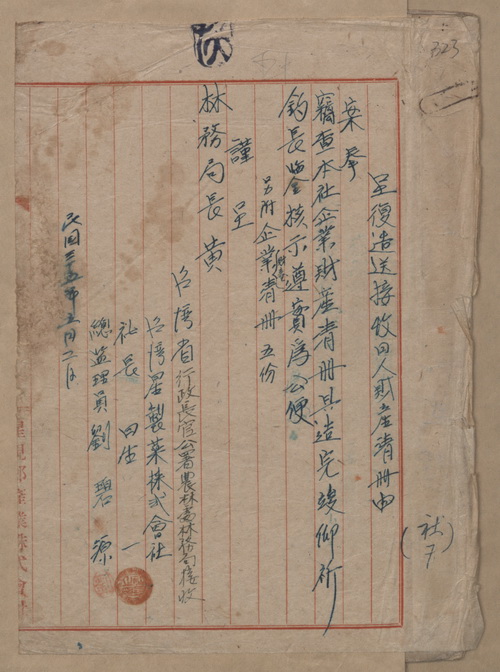 323
呈復造送接收日人財產清冊由
案奉
竊查本社企業財產清冊具造完竣仰祈
鈞長鑒核示遵實為公便
另附企業財產清冊五份
謹呈
林務局長黃
台灣省行政長官公署農林處林務局接收
台灣星製藥株式會社
社長 田生 一
總監理員 劉碧
民國三十五年五月二日